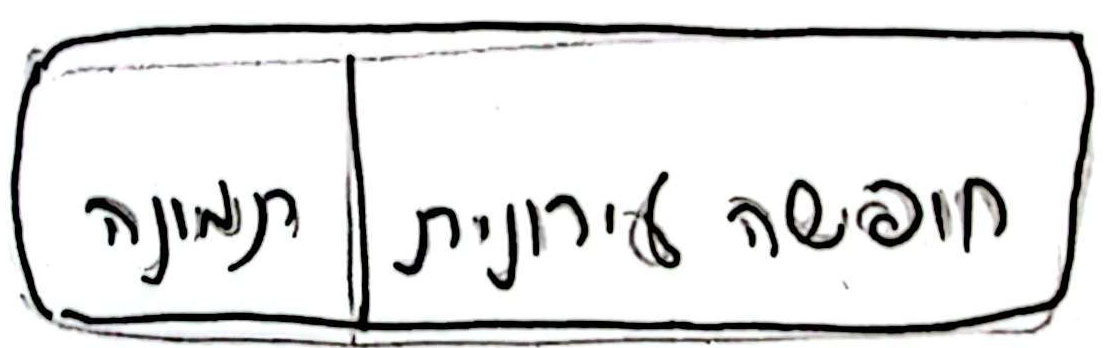 חופשה עירונית
תמונה